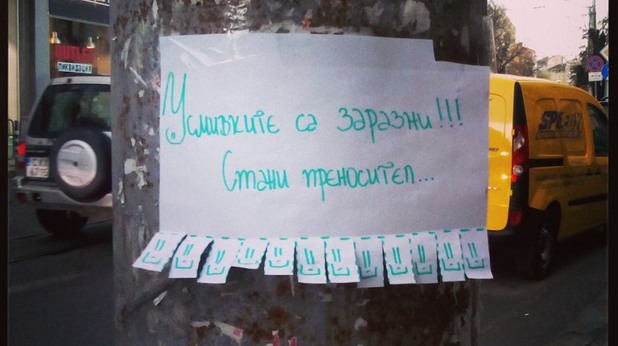 OUTLET
ЛИКВИДАЦИЯ
Усмивките са заразни!!!
Стани преносител...
SPEEDY